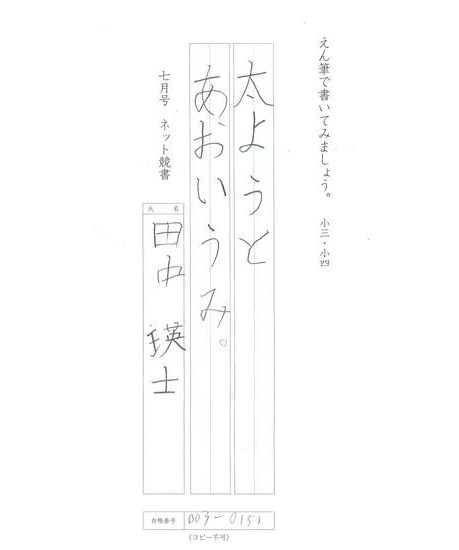 えん筆で書いてみましょう。 小三・小四
太ようと
あおいうみ。
七月号 ネット競書
氏名
田中 瑛士
有格番号 003-0151
(コピー不可)